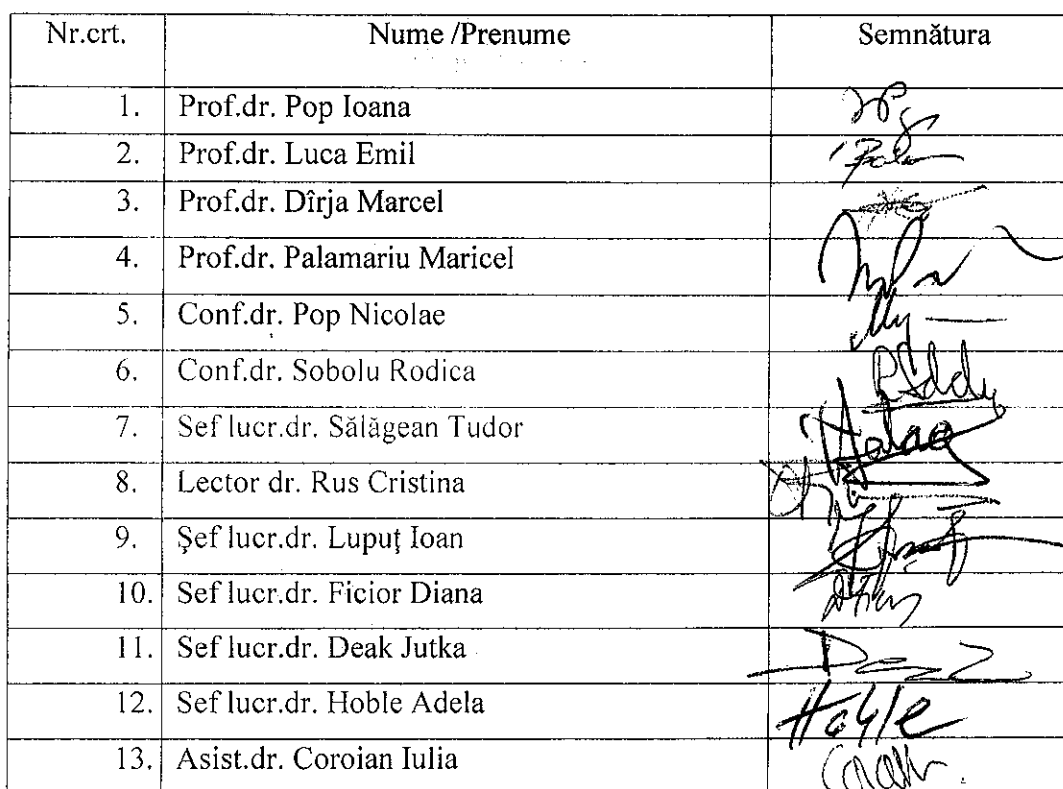 Nr.crt. Nume /Prenume Semnătura
1. Prof.dr. Pop Ioana
2. Prof.dr. Luca Emil
3. Prof.dr. Dîrja Marcel
4. Prof.dr. Palamariu Maricel
5. Conf.dr. Pop Nicolae
6. Conf.dr. Sobolu Rodica
7. Sef lucr.dr. Sălăgean Tudor
8. Lector dr. Rus Cristina
9. Şef lucr.dr. Lupuţ Ioan
10. Sef lucr.dr. Ficior Diana
11. Sef lucr.dr. Deak Jutka
12. Sef lucr.dr. Hoble Adela Hoble
13. Asist.dr. Coroian Iulia